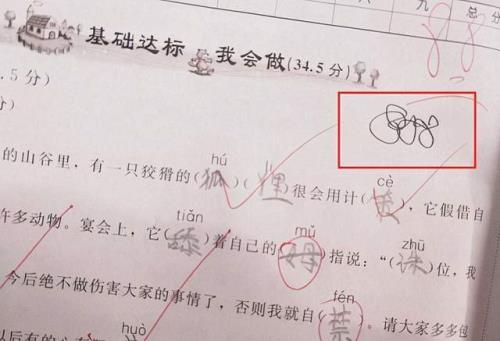 九 总 分
88
基础达标 我会做(34.5分)
.5分)
分)
hú cè
的山谷里，有一只狡猾的(狐)(狸)很会用计(策)，它假借自
tiǎn mǔ zhū
许多动物。宴会上，它(舔)着自己的(母)指说：“(诛)位，我
fén
今后绝不做伤害大家的事情了，否则我就自(禁)。请大家多多包
huò
以后有的